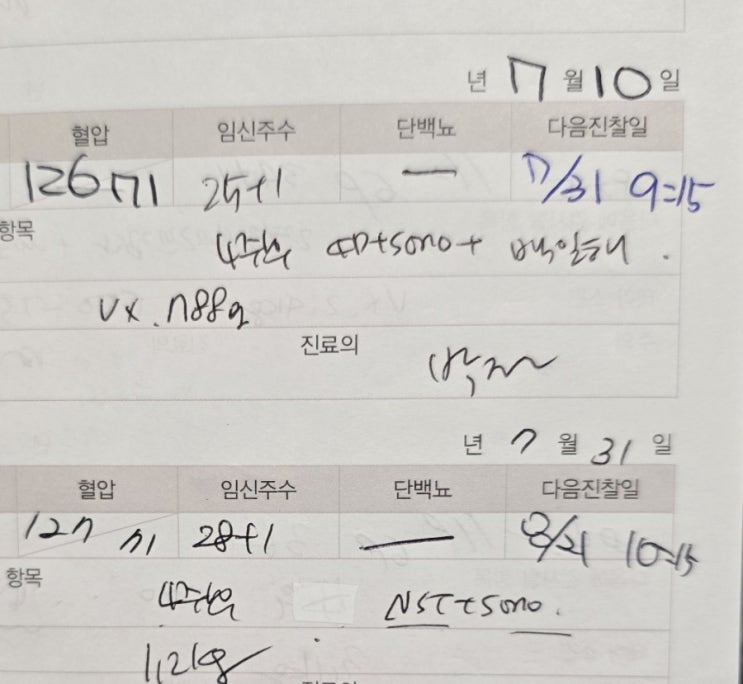 년 7 월 10 일
혈압 임신주수 단백뇨 다음진찰일
126 71 25+1 — 7/31 9:15
항목
4주후 4D+sono+ 백일해.
Vx. 788g
진료의
년 7 월 31 일
혈압 임신주수 단백뇨 다음진찰일
127 71 28+1 — 8/21 10:15
항목
4주후 NST+sono.
1.2kg